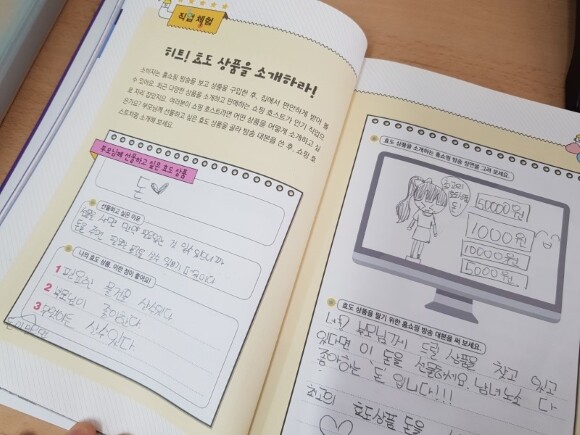 직업 체험
히트! 효도 상품을 소개하라!
소비자는 홈쇼핑 방송을 보고 상품을 구입한 후, 집에서 편안하게 받아 볼
수 있어요. 최근 다양한 상품을 소개하고 판매하는 쇼핑 호스트가 인기 직업으
로 자리 잡았지요. 여러분이 쇼핑 호스트라면 어떤 상품을 어떻게 소개하고 싶
은가요? 부모님께 선물하고 싶은 효도 상품을 골라 방송 대본을 쓴 후, 쇼핑 호
스트처럼 소개해 보세요.
부모님께 선물하고 싶은 효도 상품
돈
선물하고 싶은 이유
사면 필요없는 걸
돈을 주면 필요한
나의 효도 상품, 이런 점이 좋아요!
1 필요한 물건을 살수있다
2 부모님이 좋아한다
3 살수있다
효도 상품을 소개하는 홈쇼핑 방송 장면을 그려 보세요.
최고의
효도상품
돈
50000원
1000원
10000원
5000원
효도 상품을 팔기 위한 홈쇼핑 방송 대본을 써 보세요.
부모님께 드릴 상품을 찾고 있고
있다면 이 돈을 선물하세요. 남녀노소 다
좋아하는 돈 입니다!!!
최고의 효도상품 돈을